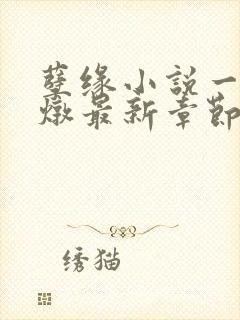 孽缘小说一
燉最新章节
绣猫